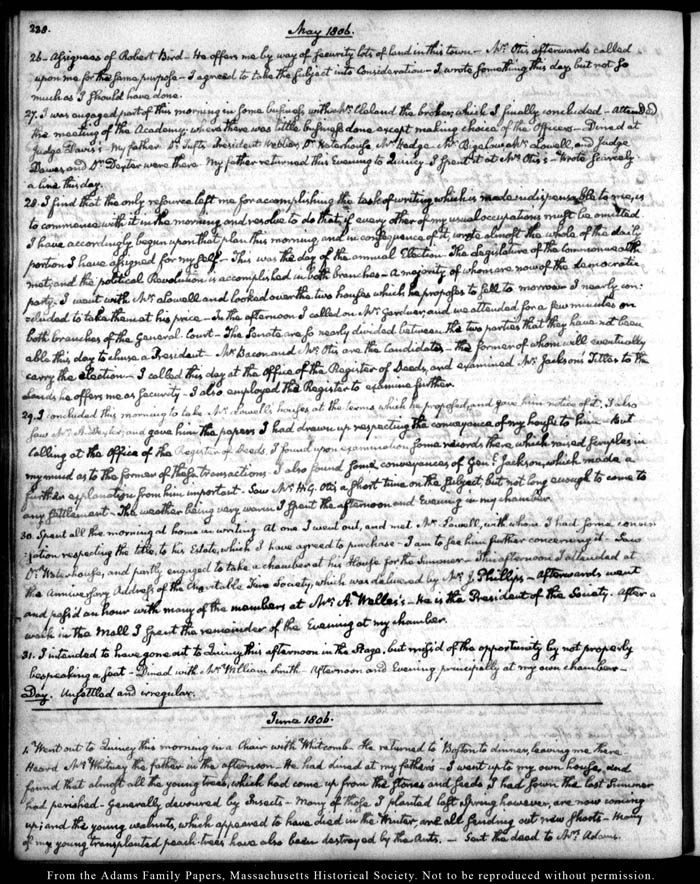 228.
May 1806.
26- Assignees of Robert Bird- He offers me by way of security lots of land in this town- Mr. Otis afterwards called
upon me for the same purpose- I agreed to take the subject into consideration- I wrote something this day but not so
much as I should have done.
27. I was engaged part of this morning in some business with Mr. Cleland the broker, which I finally concluded- Attended
the meeting of the Academy; where there was little business done except making choice of the Officers- Dined at
Judge Davis's My father Dr. Tufts, President Webber, Dr. Waterhouse Mr. Hedge Mr. Bigelow Mr. Lowell, and Judge
Dawes and Dr. Dexter were there. My father returned this Evening to Quincy. I spent it at Mr. Otis's- Wrote scarcely
a line this day.
28. I find that the only resource left me for accomplishing the task of writing which is made indispensable to me, is
to commence with it in the morning and resolve to do that, if every other of my usual occupations must be omitted
I have accordingly begun upon that plan this morning and in consequence of it, wrote almost the whole of the daily
portion I have assigned for myself- This was the day of the annual Election. The Legislature of the Commonwealth
met; and the political Revolution is accomplished in both branches- a majority of whom are now of the democratic
party- I went with Mr. Lowell and looked over the two houses which he proposes to sell to morrow- I nearly con:
cluded to take them at his price- In the afternoon I called on Mr. Gardner, and we attended for a few minutes on
both branches of the General Court- The Senate are so nearly divided between the two parties that they have not been
able this day to chuse a President- Mr. Bacon and Mr. Otis are the Candidates- the former of whom will eventually
carry the election- I called this day at the Office of the Register of Deeds, and examined Mr. Jackson's Titles to the
Lands he offers me as security- I also employed the Register to examine further.
29. I concluded this morning to take Mr. Lowell's houses at the terms which he proposed, and gave him notice of it; I also
saw Mr. A. Dexter, and gave him the papers I had drawn up respecting the conveyance of my house to him- But
calling at the Office of the Register of Deeds, I found upon examination some records there which raised scruples in
my mind as to the former of these transactions. I also found some conveyances of Genl. Jackson, which made a
further explanation from him important- Saw Mr. H. G. Otis a short time on the subject but not long enough to come to
any settlement- The weather being very warm I spent the afternoon and Evening in my chamber.
30. Spent all the morning at home in writing- At one I went out, and met Mr. Lowell, with whom I had some conver
sation respecting the title, to his Estate, which I have agreed to purchase- I am to see him further concerning it- Saw
Dr. Waterhouse, and partly engaged to take a chamber at his House for the Summer- This afternoon I attended at
the Anniversary Address of the Charitable Fire Society, which was delivered by Mr. J. Phillips- Afterwards went
and pass'd an hour with many of the members at Mr. A. Welles's- He is the President of the Society. After a
walk in the Mall I spent the remainder of the Evening at my chamber.
31. I intended to have gone out to Quincy this afternoon in the Stage, but miss'd of the opportunity by not properly
bespeaking a seat- Dined with Mr. William Smith- Afternoon and Evening principally at my own chamber-
Day. Unsettled and irregular.
June 1806.
1. Went out to Quincy this morning in a Chair with Whitcomb- He returned to Boston to dinner, leaving me there
Heard Mr. Whitney the father in the afternoon- He had dined at my fathers- I went up to my own house, and
found that almost all the young trees, which had come up from the stones and seeds I had sown the last Summer
had perished- Generally devoured by Insects- Many of those I planted last Spring however, are now coming
up; and the young walnuts, which appeared to have died in the Winter, are all sending out new shoots- Many
of my young transplanted peach-trees have also been destroyed by the Ants.- Sent the deed to Mrs. Adams.
From the Adams Family Papers, Massachusetts Historical Society. Not to be reproduced without permission.